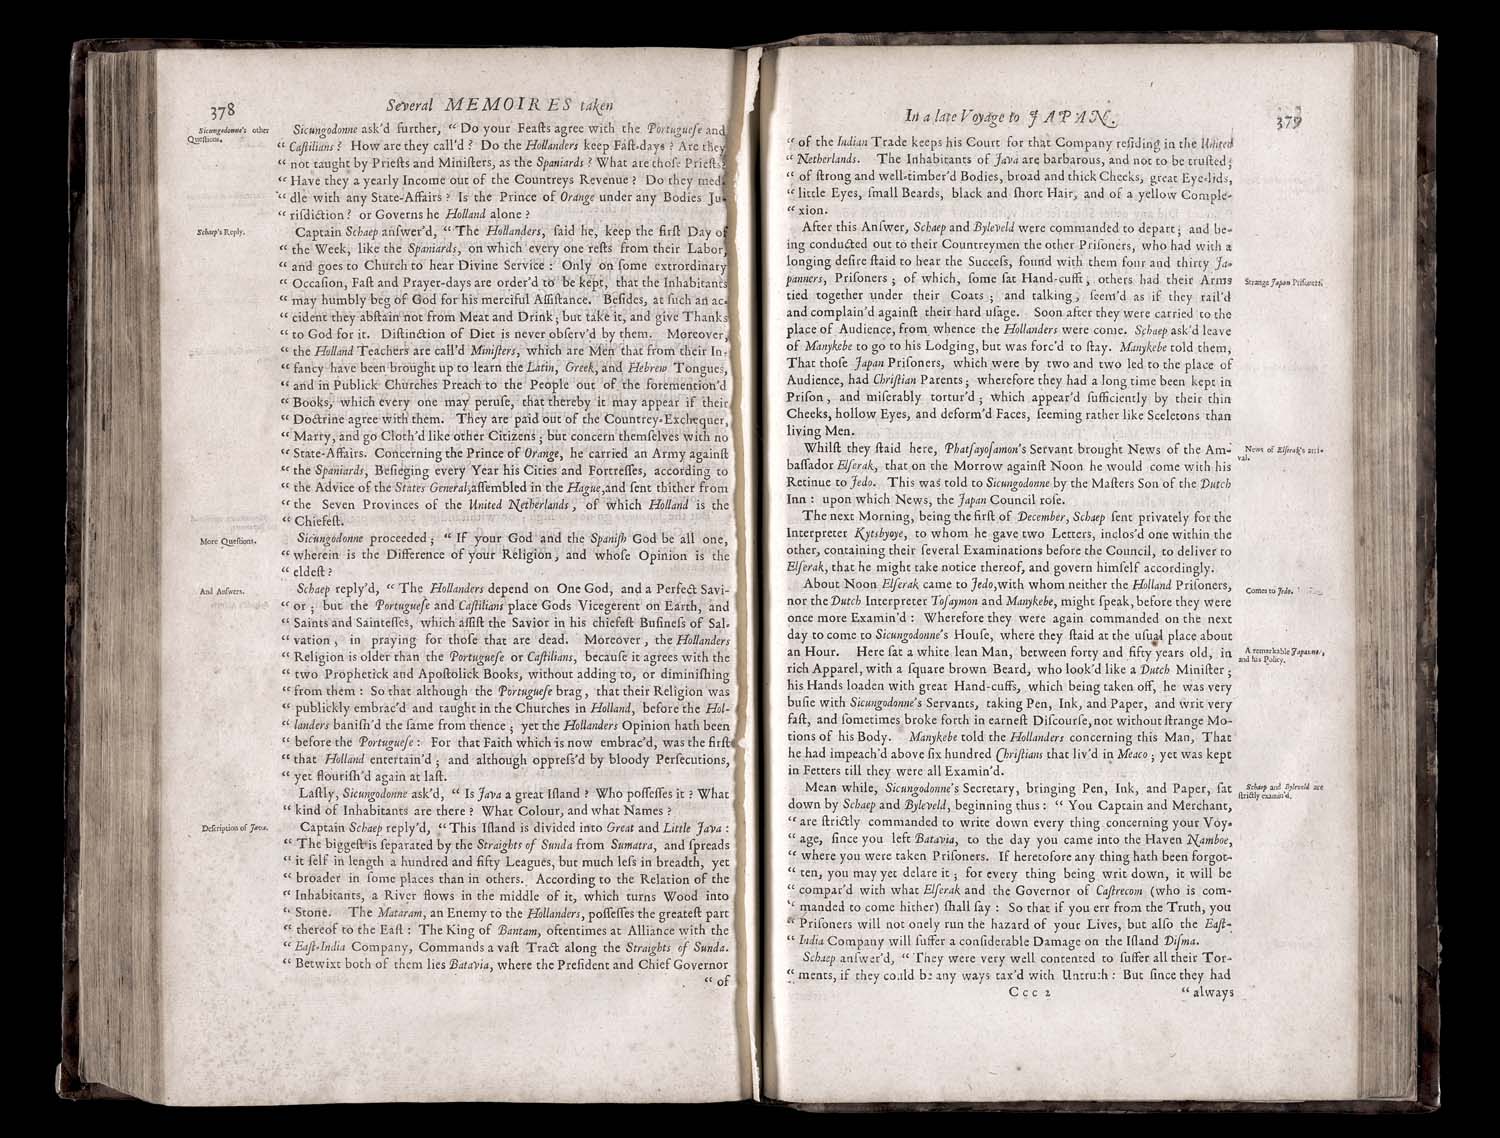 378
Several MEMOIRES taken
Sicungodonne's other
Questions.
Sicungodonne ask'd further, “ Do your Feaſts agree with the Portugueſe and
“ Caſtilians ? How are they call'd ? Do the Hollanders keep Faſt-days ? Are they
“ not taught by Prieſts and Miniſters, as the Spaniards ? What are thoſe Prieſts ?
“ Have they a yearly Income out of the Countreys Revenue ? Do they med-
“ dle with any State-Affairs ? Is the Prince of Orange under any Bodies Ju-
“ riſdiction ? or Governs he Holland alone ?
Schaep's Reply.
Captain Schaep anſwer'd, “ The Hollanders, ſaid he, keep the firſt Day of
“ the Week, like the Spaniards, on which every one reſts from their Labor,
“ and goes to Church to hear Divine Service : Only on ſome extrordinary
“ Occaſion, Faſt and Prayer-days are order'd to be kept, that the Inhabitants
“ may humbly beg of God for his merciful Aſſiſtance. Beſides, at ſuch an ac-
“ cident they abſtain not from Meat and Drink; but take it, and give Thanks
“ to God for it. Diſtinction of Diet is never obſerv'd by them. Moreover,
“ the Holland Teachers are call'd Miniſters, which are Men that from their In-
“ fancy have been brought up to learn the Latin, Greek, and Hebrew Tongues,
“ and in Publick Churches Preach to the People out of the forementìon'd
“ Books, which every one may peruſe, that thereby it may appear if their
“ Doctrine agree with them. They are paid out of the Countrey-Exchequer,
“ Marry, and go Cloth'd like other Citizens ; but concern themſelves with no
“ State-Affairs. Concerning the Prince of Orange, he carried an Army againſt
“ the Spaniards, Beſieging every Year his Cities and Fortreſſes, according to
“ the Advice of the States General,aſſembled in the Hague,and ſent thither from
“ the Seven Provinces of the United Netherlands, of which Holland is the
“ Chiefeſt.
More Queſtions.
Sicungodonne proceeded ; “ If your God and the Spaniſh God be all one,
“ wherein is the Difference of your Religion, and whoſe Opinion is the
“ eldeſt ?
And Anſwers.
Schaep reply'd, “ The Hollanders depend on One God, and a Perfect Savi-
“ or ; but the Portugueſe and Caſtilians place Gods Vicegerent on Earth, and
“ Saints and Sainteſſes, which aſſiſt the Savior in his chiefeſt Buſineſs of Sal-
“ vation , in praying for thoſe that are dead. Moreover , the Hollanders
“ Religion is older than the Portugueſe or Caſtilians, becauſe it agrees with the
“ two Prophetick and Apoſtolick Books, without adding to, or diminiſhing
“ from them : So that although the Portugueſe brag , that their Religion was
“ publickly embrac'd and taught in the Churches in Holland, before the Hol-
“ landers baniſh'd the ſame from thence ; yet the Hollanders Opinion hath been
“ before the Portugueſe : For that Faith which is now embrac'd, was the firſt
“ that Holland entertain'd ; and although oppreſs'd by bloody Perſecutions,
“ yet flouriſh'd again at laſt.
Laſtly, Sicungodonne ask'd, “ Is Java a great Iſland ? Who poſſeſſes it ? What
“ kind of Inhabitants are there ? What Colour, and what Names ?
Deſcription of Java.
Captain Schaep reply'd, “ This Iſland is divided into Great and Little Java :
“ The biggeſt is ſeparated by the Straights of Sunda from Sumatra, and ſpreads
“ it ſelf in length a hundred and fifty Leagues, but much leſs in breadth, yet
“ broader in ſome places than in others. According to the Relation of the
“ Inhabitants, a River flows in the middle of it, which turns Wood into
“ Stone. The Mataram, an Enemy to the Hollanders, poſſeſſes the greateſt part
“ thereof to the Eaſt : The King of Bantam, oftentimes at Alliance with the
“ Eaſt-India Company, Commands a vaſt Tract along the Straights of Sunda.
“ Betwixt both of them lies Batavia, where the Preſident and Chief Governor
“ of
In a late Voyage to JAPAN.
379
“ of the Indian Trade keeps his Court for that Company reſiding in the United
“ Netherlands. The Inhabitants of Java are barbarous, and not to be truſted;
“ of ſtrong and well-timber'd Bodies, broad and thick Cheeks, great Eye-lids,
“ little Eyes, ſmall Beards, black and ſhort Hair, and of a yellow Comple-
“ xion.
After this Anſwer, Schaep and Byleveld were commanded to depart ; and be-
ing conducted out to their Countreymen the other Priſoners, who had with a
longing deſire ſtaid to hear the Succeſs, found with them four and thirty Ja-
panners, Priſoners ; of which, ſome ſat Hand-cufft, others had their Arms
tied together under their Coats ; and talking, ſeem'd as if they rail'd
and complain'd againſt their hard uſage. Soon after they were carried to the
place of Audience, from whence the Hollanders were come. Schaep ask'd leave
of Manykebe to go to his Lodging, but was forc'd to ſtay. Manykebe told them,
That thoſe Japan Priſoners, which were by two and two led to the place of
Audience, had Chriſtian Parents ; wherefore they had a long time been kept in
Priſon, and miſerably tortur'd ; which appear'd ſufficiently by their thin
Cheeks, hollow Eyes, and deform'd Faces, ſeeming rather like Sceletons than
living Men.
Strange Japan Priſoners.
Whilſt they ſtaid here, Phatſayoſamon's Servant brought News of the Am-
baſſador Elſerak, that on the Morrow againſt Noon he would come with his
Retinue to Jedo. This was told to Sicungodonne by the Maſters Son of the Dutch
Inn : upon which News, the Japan Council roſe.
News of Elſerak's arri-
val.
The next Morning, being the firſt of December, Schaep ſent privately for the
Interpreter Kytsbyoye, to whom he gave two Letters, inclos'd one within the
other, containing their ſeveral Examinations before the Council, to deliver to
Elſerak, that he might take notice thereof, and govern himſelf accordingly.
About Noon Elſerak came to Jedo,with whom neither the Holland Priſoners,
nor the Dutch Interpreter Toſaymon and Manykebe, might ſpeak, before they were
once more Examin'd : Wherefore they were again commanded on the next
day to come to Sicungodonne's Houſe, where they ſtaid at the uſual place about
an Hour. Here ſat a white lean Man, between forty and fifty years old, in
rich Apparel, with a ſquare brown Beard, who look'd like a Dutch Miniſter ;
his Hands loaden with great Hand-cuffs, which being taken off, he was very
buſie with Sicungodonne's Servants, taking Pen, Ink, and Paper, and writ very
faſt, and ſometimes broke forth in earneſt Diſcourſe, not without ſtrange Mo-
tions of his Body. Manykebe told the Hollanders concerning this Man, That
he had impeach'd above ſix hundred Chriſtians that liv'd in Meaco ; yet was kept
in Fetters till they were all Examin'd.
Comes to Jedo.
A remarkable Japanner,
and his Policy.
Mean while, Sicungodonne's Secretary, bringing Pen, Ink, and Paper, ſat
down by Schaep and Byleveld, beginning thus : “ You Captain and Merchant,
“ are ſtrictly commanded to write down every thing concerning your Voy-
“ age, ſince you left Batavia, to the day you came into the Haven Namboe,
“ where you were taken Priſoners. If heretofore any thing hath been forgot-
“ ten, you may yet delare it ; for every thing being writ down, it will be
“ compar'd with what Elſerak and the Governor of Caſtrecom (who is com-
“ manded to come hither) ſhall ſay : So that if you err from the Truth, you
“ Priſoners will not onely run the hazard of your Lives, but alſo the Eaſt-
“ India Company will ſuffer a conſiderable Damage on the Iſland Diſma.
Schaep and Byleveld are
ſtrictly examin'd.
Schaep anſwer'd, “ They were very well contented to ſuffer all their Tor-
“ ments, if they could be any ways tax'd with Untruth : But ſince they had
Ccc 2
“ always